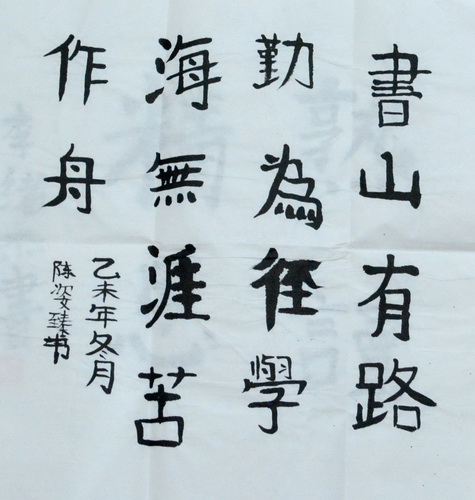 書山有路
勤為徑學
海無涯苦
作舟
乙未年冬月
陈姿臻书